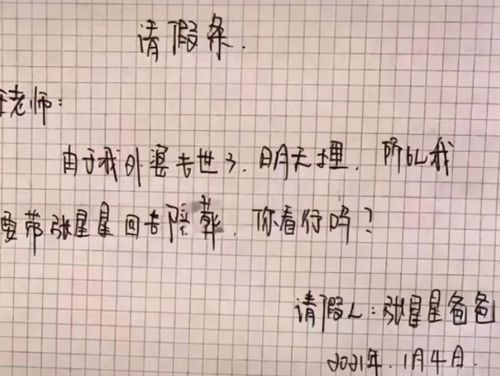 请假条.
老师:
由于我外婆去世了.明天埋.所以我
要带张星星回去陪葬.你看行吗?
请假人:张星星爸爸
2021年.1月4日.